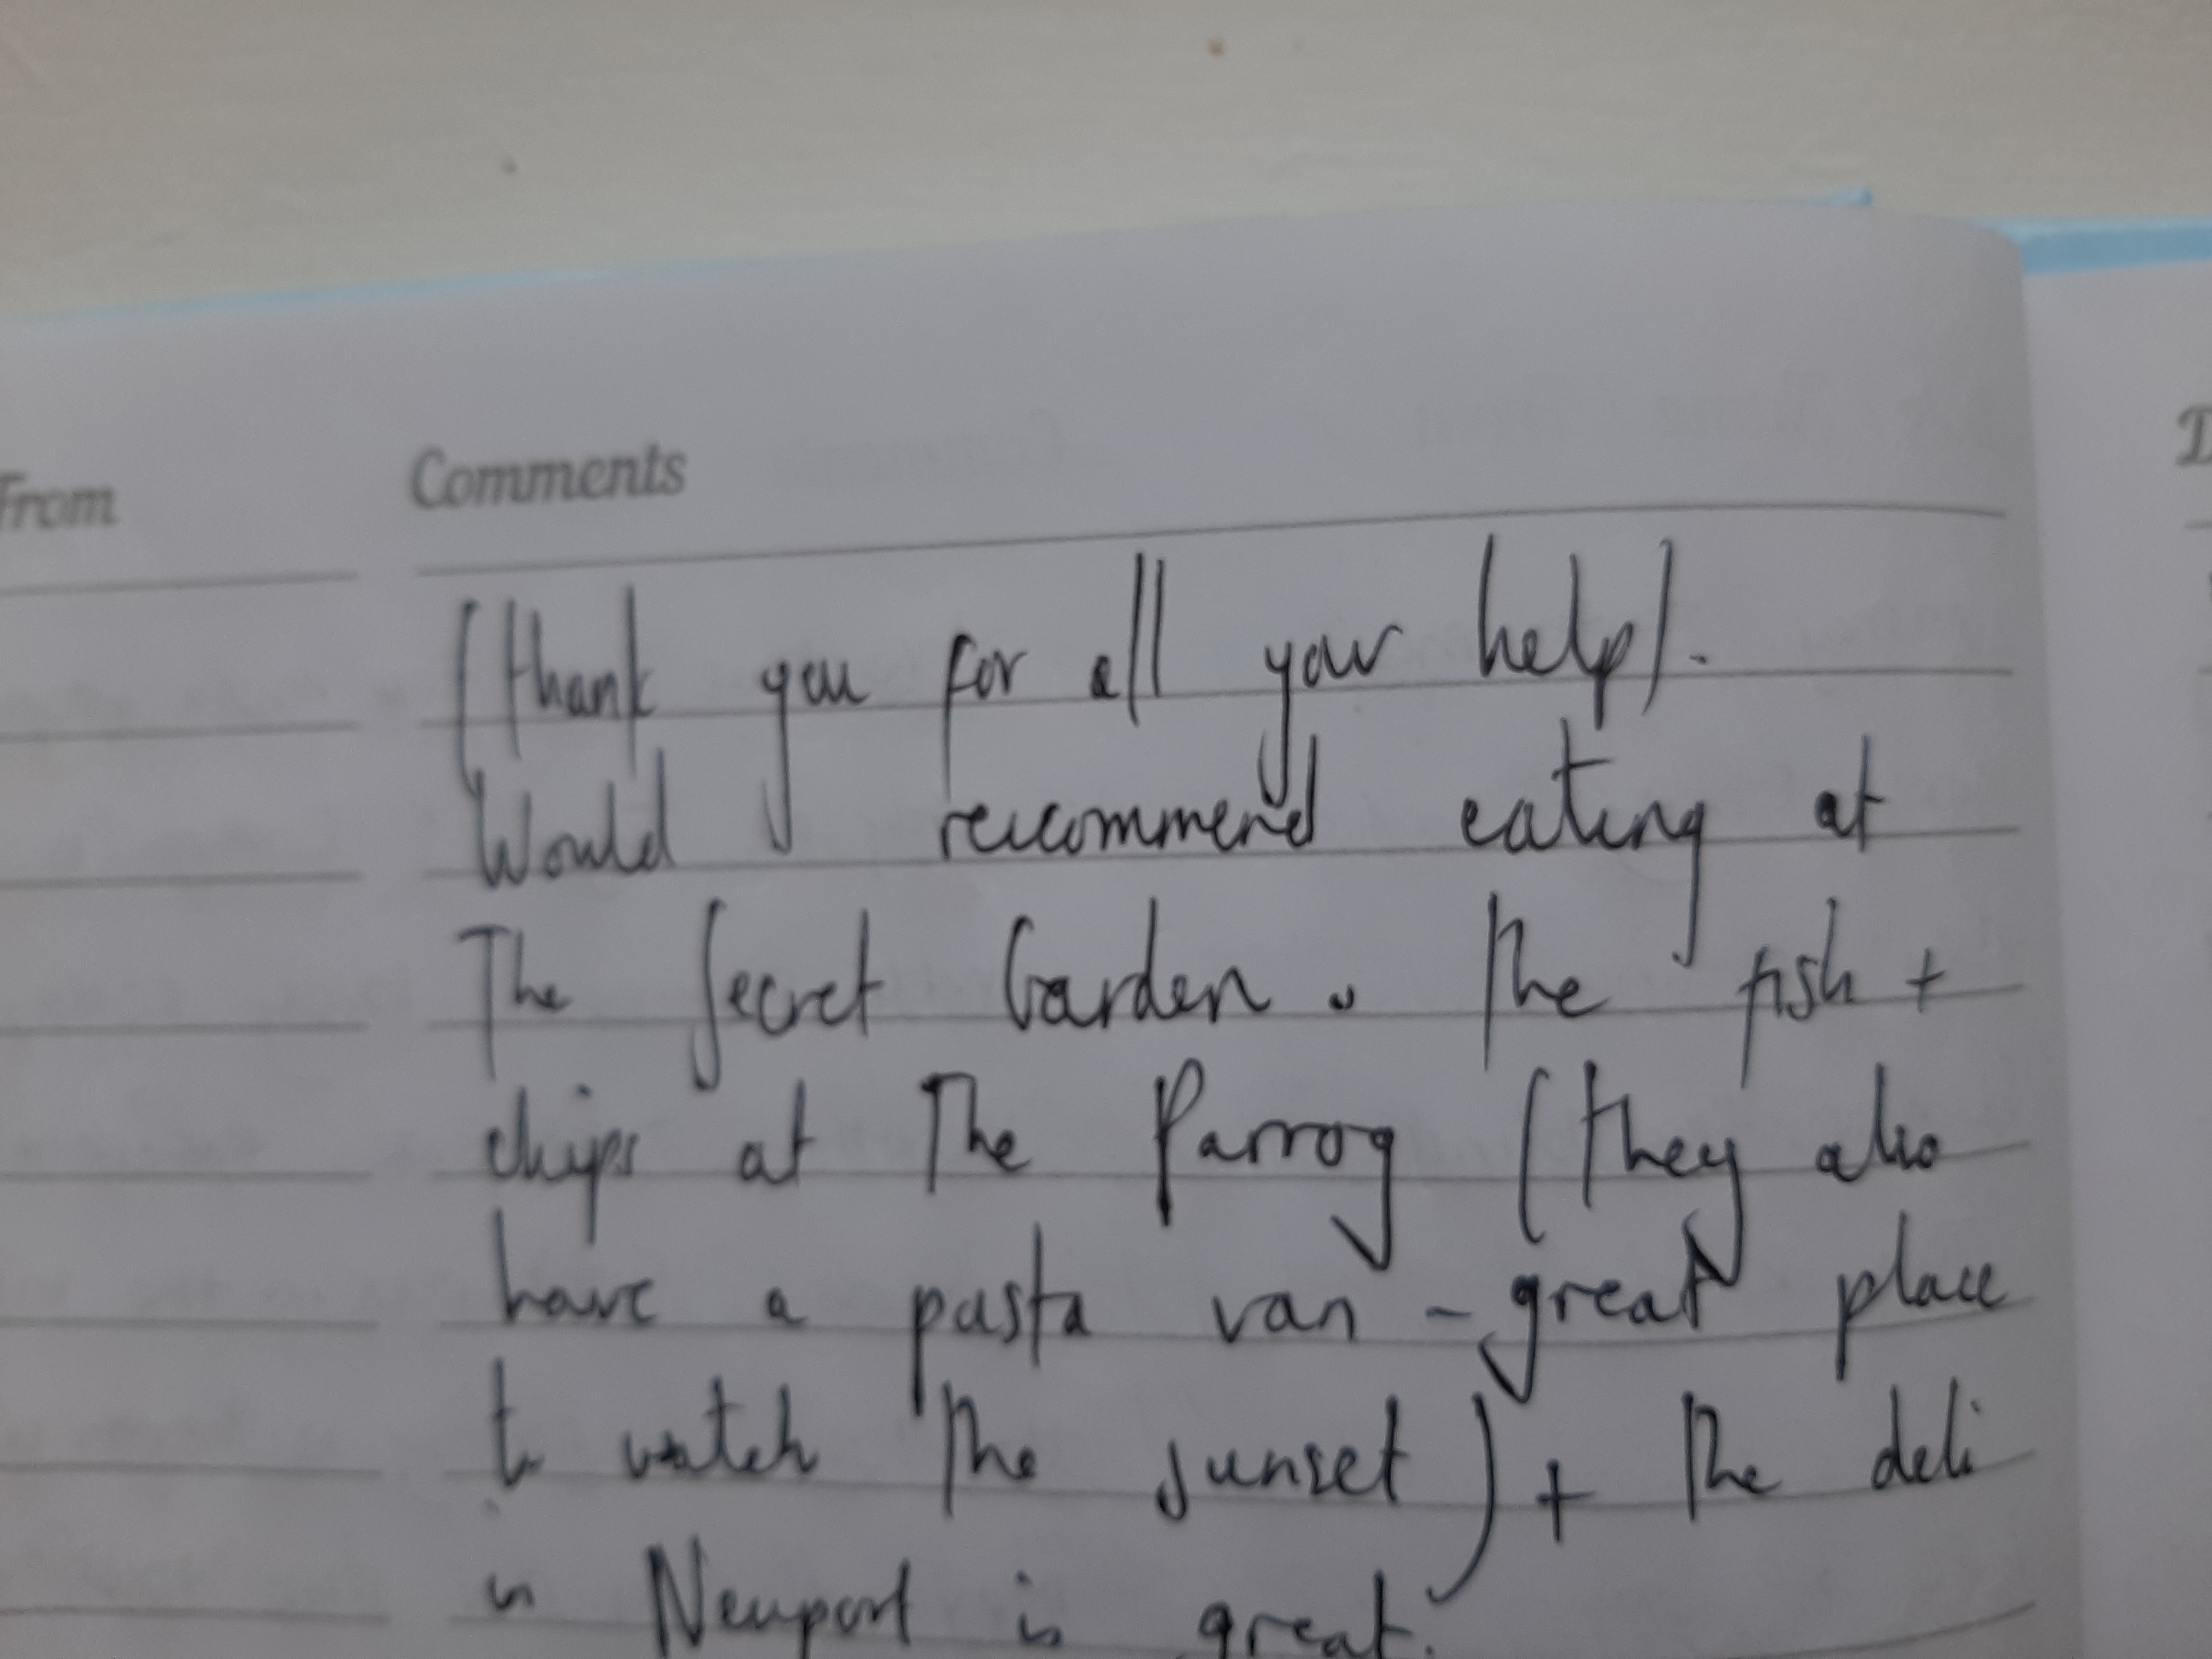 From Comments
(thank you for all your help).
Would recommend eating at
The Secret Garden. The fish +
chips at The Parrog (they also
have a pasta van - great place
to watch the sunset) + the deli
in Newport is great.